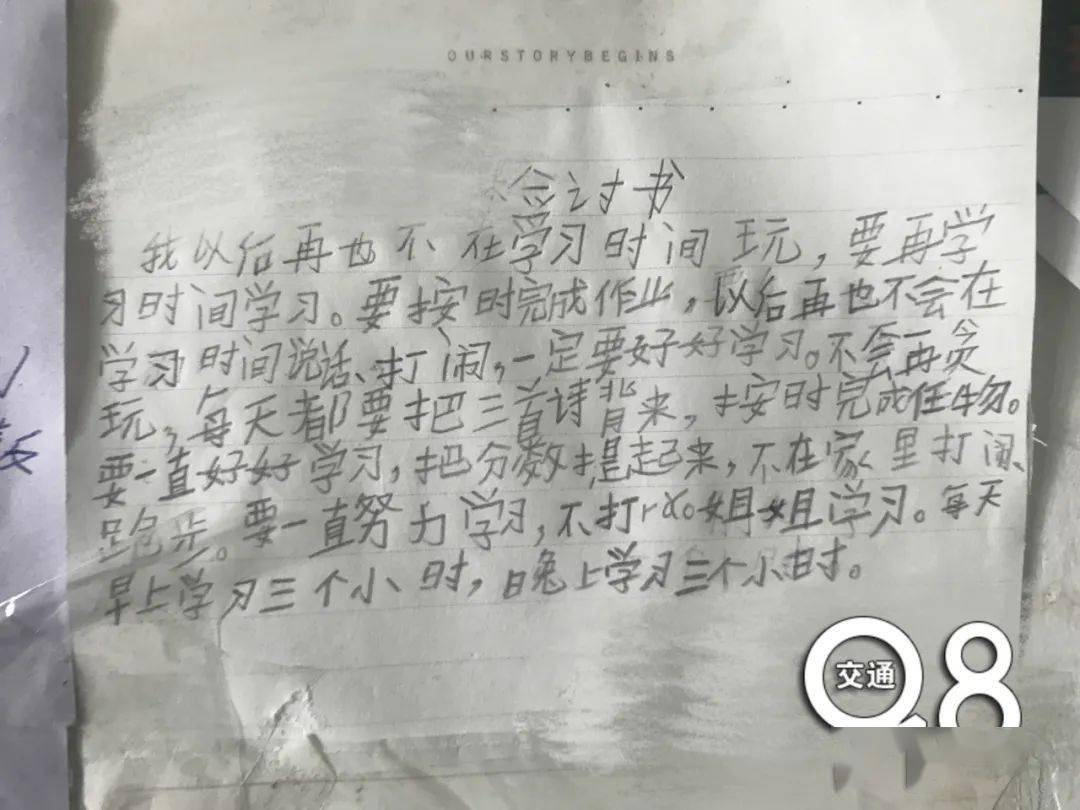 OURSTORYBEGINS
讨书
我以后再也不在学习时间玩，要再学
习时间学习。要按时完成作业，以后再也不会在
学习时间说话、打闹，一定要好好学习。不会再贪
玩，每天都要把三首诗背来，按时完成任物。
要一直好好学习，把分数提起来，不在家里打闹、
跑步。要一直努力学习，不打rɑo姐姐学习。每天
早上学习三个小时，晚上学习三个小时。
交通
8